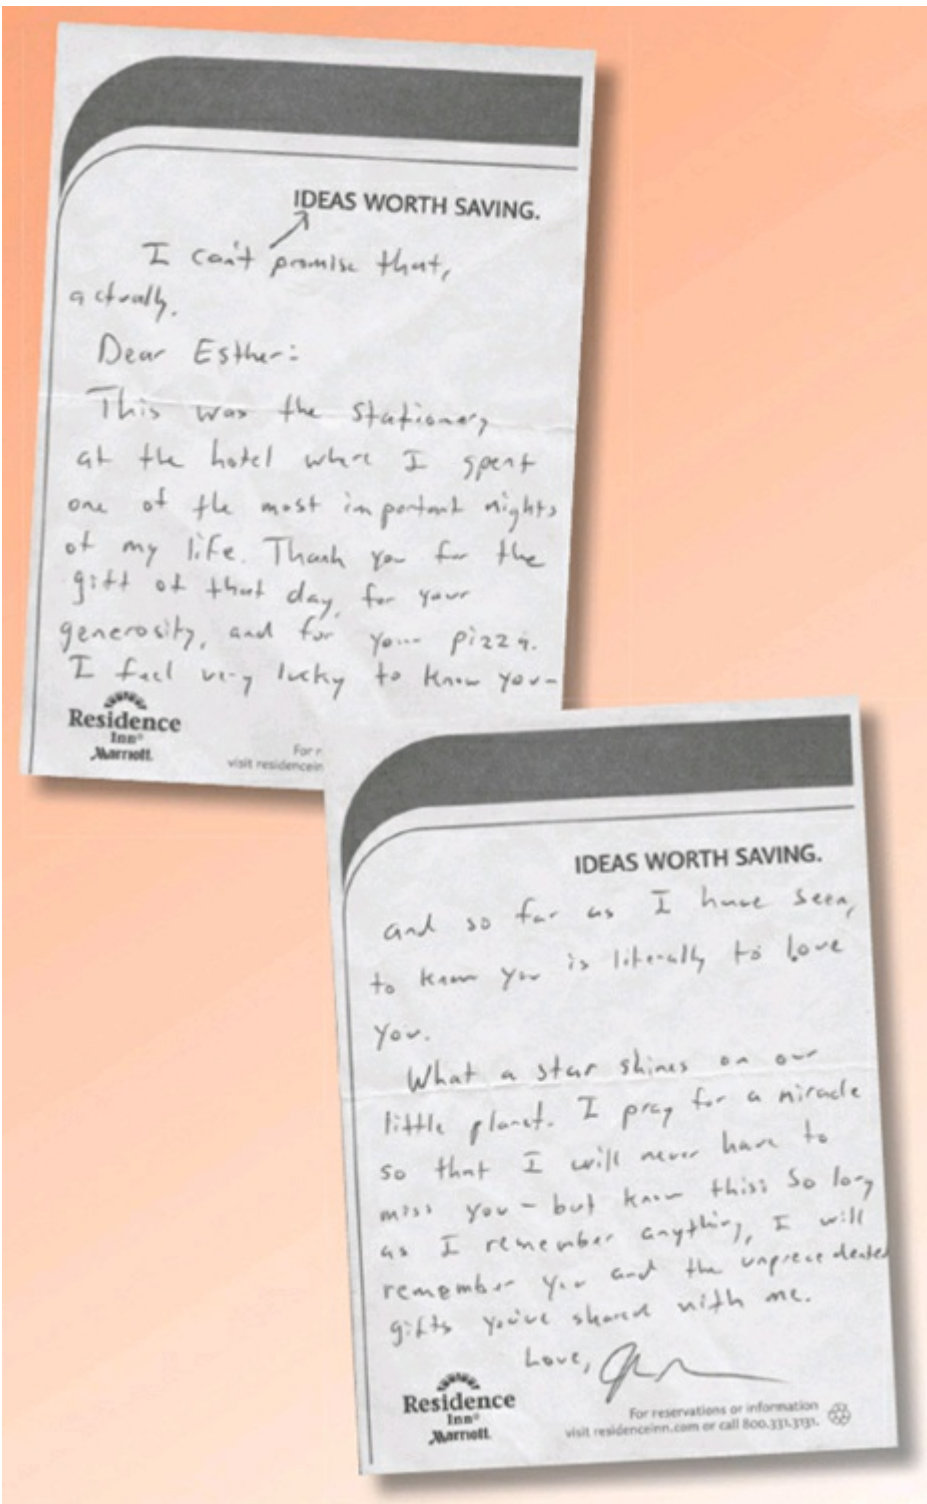 IDEAS WORTH SAVING.
I can't promise that,
actually.
Dear Esther:
This was the stationery
at the hotel where I spent
one of the most important nights
of my life. Thank you for the
gift of that day, for your
generosity, and for your pizza.
I feel very lucky to know you-
Residence
Inn®
Marriott.
For r
visit residencein
IDEAS WORTH SAVING.
and so far as I have seen,
to know you is literally to love
you.
What a star shines on our
little planet. I pray for a miracle
so that I will never have to
miss you - but know this: So long
as I remember anything, I will
remember you and the unprecedented
gifts you've shared with me.
Love,
Residence
Inn®
Marriott.
For reservations or information
visit residenceinn.com or call 800.331.3131.